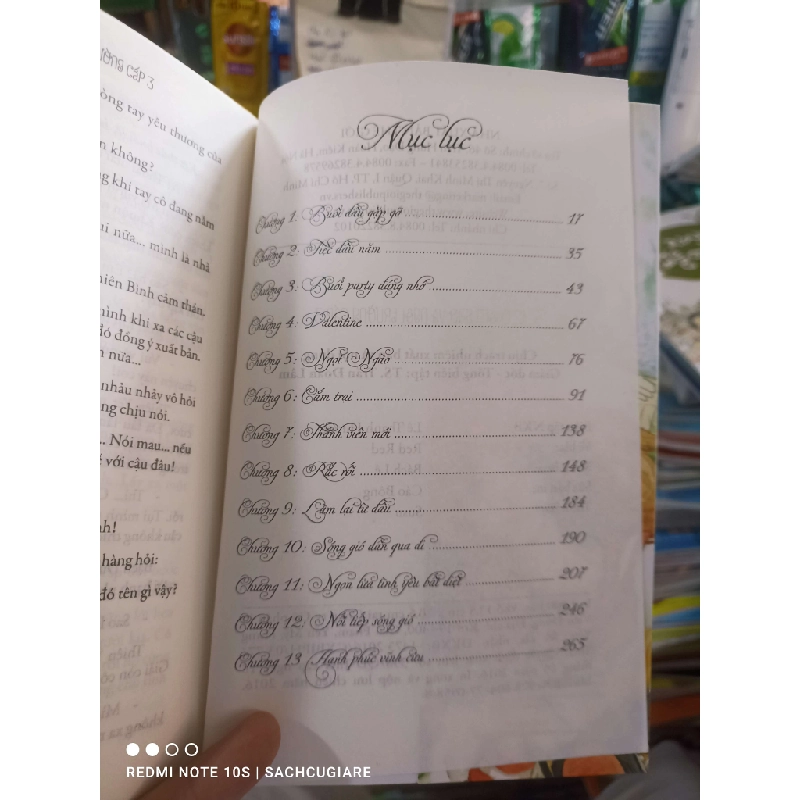 ƯỜNG CẤP 3
òng tay yêu thương của
n không?
g khi tay cô đang nắm
ni nữa... mình là nhà
hiên Bình cảm thán.
mình khi xa các cậu
đó đồng ý xuất bản.
n nữa...
nhảu nhảy vô hỏi
ng chịu nói.
... Nói mau... nếu
với cậu đâu!
nh!
hàng hỏi:
đó tên gì vậy?
Mục lục
Chương 1: Buổi đầu gặp gỡ 17
Chương 2: Tiệc đầu năm 35
Chương 3: Buổi party đáng nhớ 43
Chương 4: Valentine 67
Chương 5: Ngọt Ngào 76
Chương 6: Cắm trại 91
Chương 7: Thành viên mới 138
Chương 8: Rắc rối 148
Chương 9: Làm lại từ đầu 184
Chương 10: Sóng gió dần qua đi 190
Chương 11: Ngọn lửa tình yêu bất diệt 207
Chương 12: Nối tiếp sóng gió 246
Chương 13 Hạnh phúc vĩnh cửu 265
REDMI NOTE 10S | SACHCUGIARE